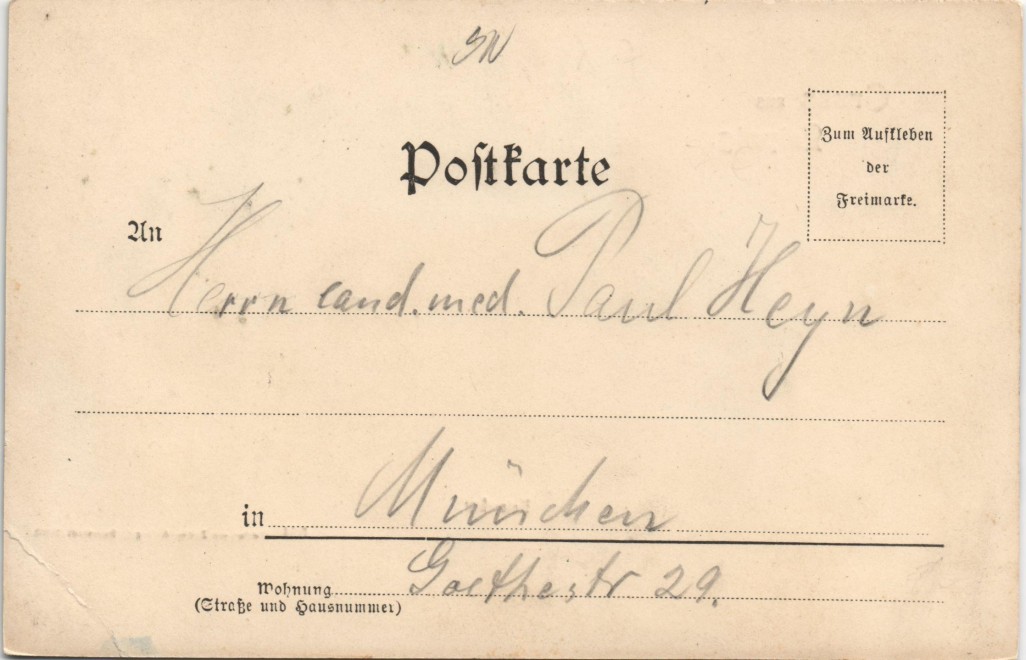 Postkarte
Zum Aufkleben
der
Freimarke.
An Herrn cand. med. Paul Heyn
in München
Wohnung Goethestr 29.
(Straße und Hausnummer)